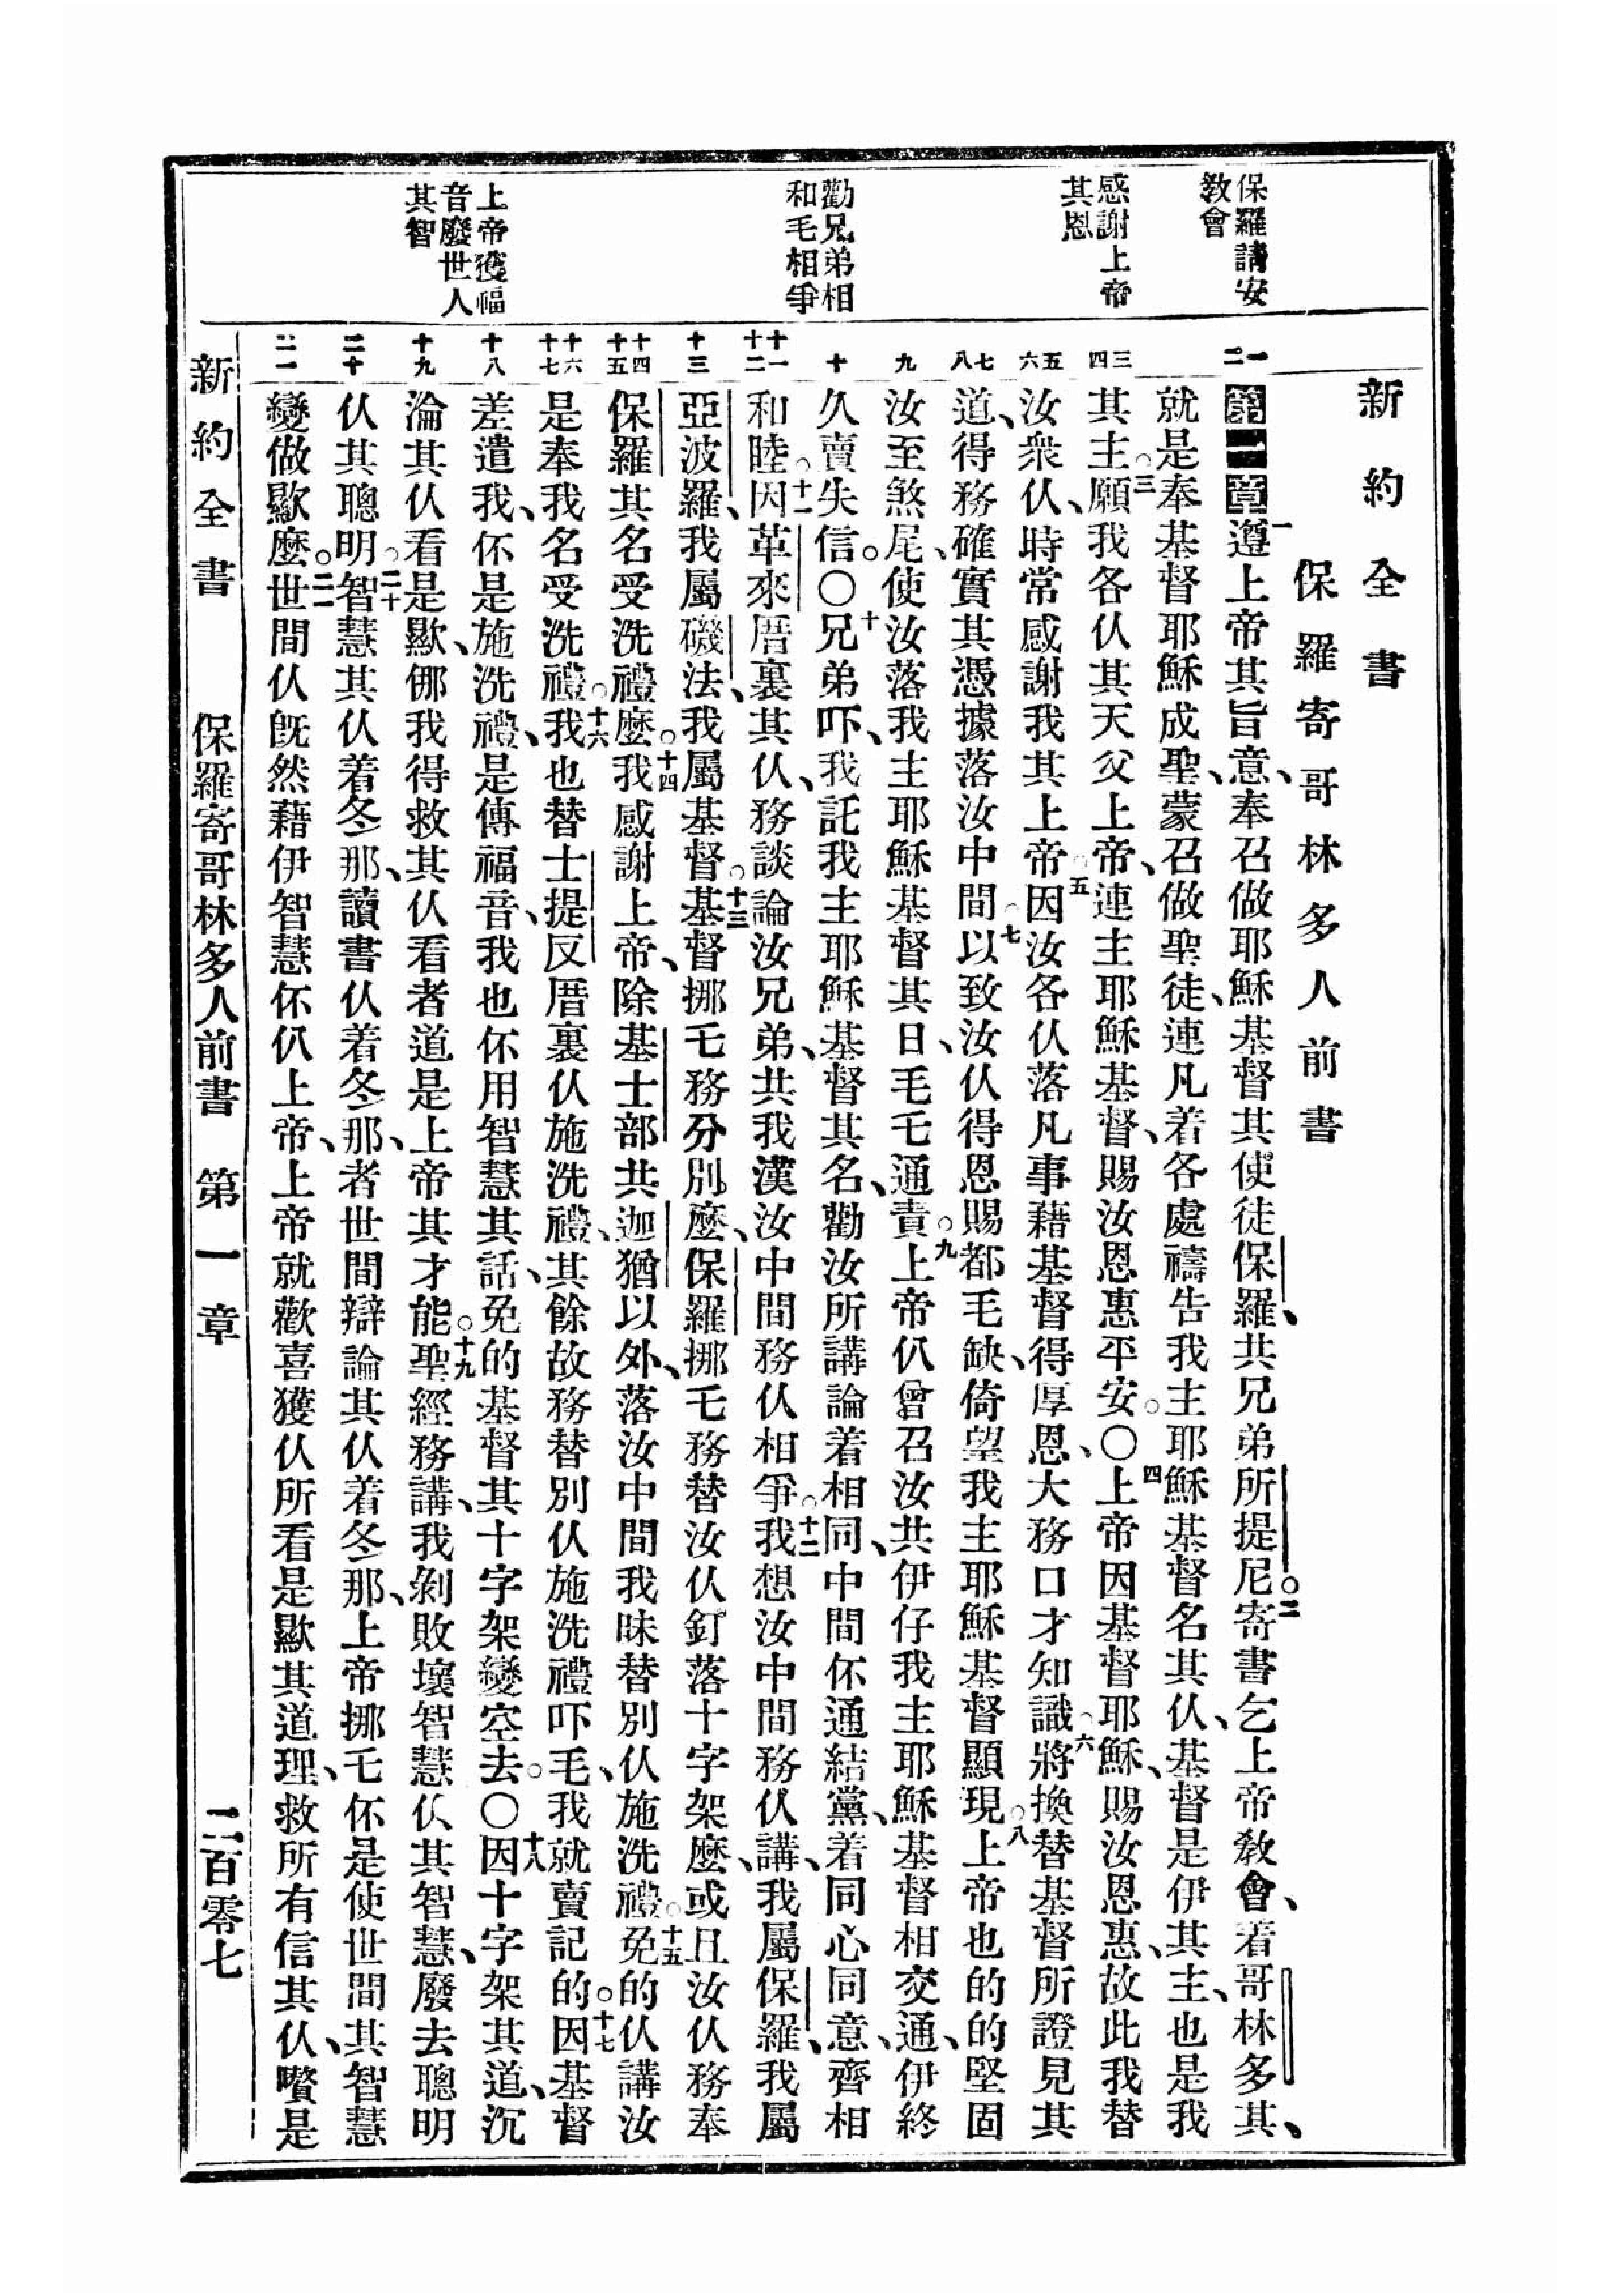 新約全書
保羅寄哥林多人前書
保羅請安
教會
感謝上帝
其恩
勸兄弟相
和毛相爭
上帝獲福
音廢世人
其智
一 二
三 四
五 六
七 八
九
十
十一 十二
十三
十四 十五
十六 十七
十八
十九
二十
二一
第一章 一遵上帝其旨意、奉召做耶穌基督其使徒保羅、共兄弟所提尼。二寄書乞上帝教會、着哥林多其、
就是奉基督耶穌成聖、蒙召做聖徒、連凡着各處禱告我主耶穌基督名其仈、基督是伊其主、也是我
其主。三願我各仈其天父上帝、連主耶穌基督、賜汝恩惠平安。〇四上帝因基督耶穌、賜汝恩惠、故此我替
汝衆仈、時常感謝我其上帝。五因汝各仈落凡事藉基督得厚恩、大務口才知識。六將換替基督所證見其
道、得務確實其憑據落汝中間。七以致汝仈得恩賜都毛缺、倚望我主耶穌基督顯現。八上帝也的的堅固
汝至煞尾、使汝落我主耶穌基督其日、毛乇通責。九上帝仈曾召汝共伊仔我主耶穌基督相交通、伊終
久賣失信。〇十兄弟吓、我託我主耶穌基督其名、勸汝所講論着相同、中間伓通結黨、着同心同意、齊相
和睦。十一因革來厝裏其仈、務談論汝兄弟、共我漢汝中間務仈相爭。十二我想汝中間務仈講、我屬保羅、我屬
亞波羅、我屬磯法、我屬基督。十三基督挪乇務分別麼、保羅挪乇務替汝仈釘落十字架麼、或且汝仈務奉
保羅其名受洗禮麼。十四我感謝上帝、除基士部共迦猶以外、落汝中間我昧替別仈施洗禮。十五免的仈講汝
是奉我名受洗禮。十六我也替士提反厝裏仈施洗禮、其餘故務替別仈施洗禮吓毛、我就賣記的。十七因基督
差遣我、伓是施洗禮、是傳福音、我也伓用智慧其話、免的基督其十字架變空去。〇十八因十字架其道、沉
淪其仈看是歞、㑚我得救其仈看者道是上帝其才能。十九聖經務講、我剝敗壞智慧仈其智慧、廢去聰明
仈其聰明。二十智慧其仈着冬那、讀書仈着冬那、者世間辯論其仈着冬那、上帝挪乇伓是使世間其智慧
變做歞麼。二一世間仈旣然藉伊智慧伓仈上帝、上帝就歡喜獲仈所看是歞其道理、救所有信其仈、嚽是
新約全書 保羅寄哥林多人前書 第一章 二百零七